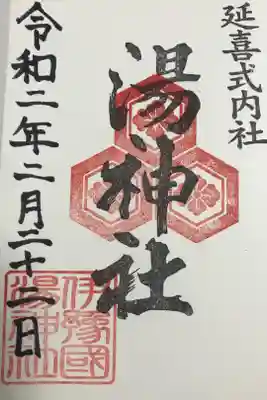 延喜式内社
湯神社
令和二年二月二十二日
伊豫國
湯神社